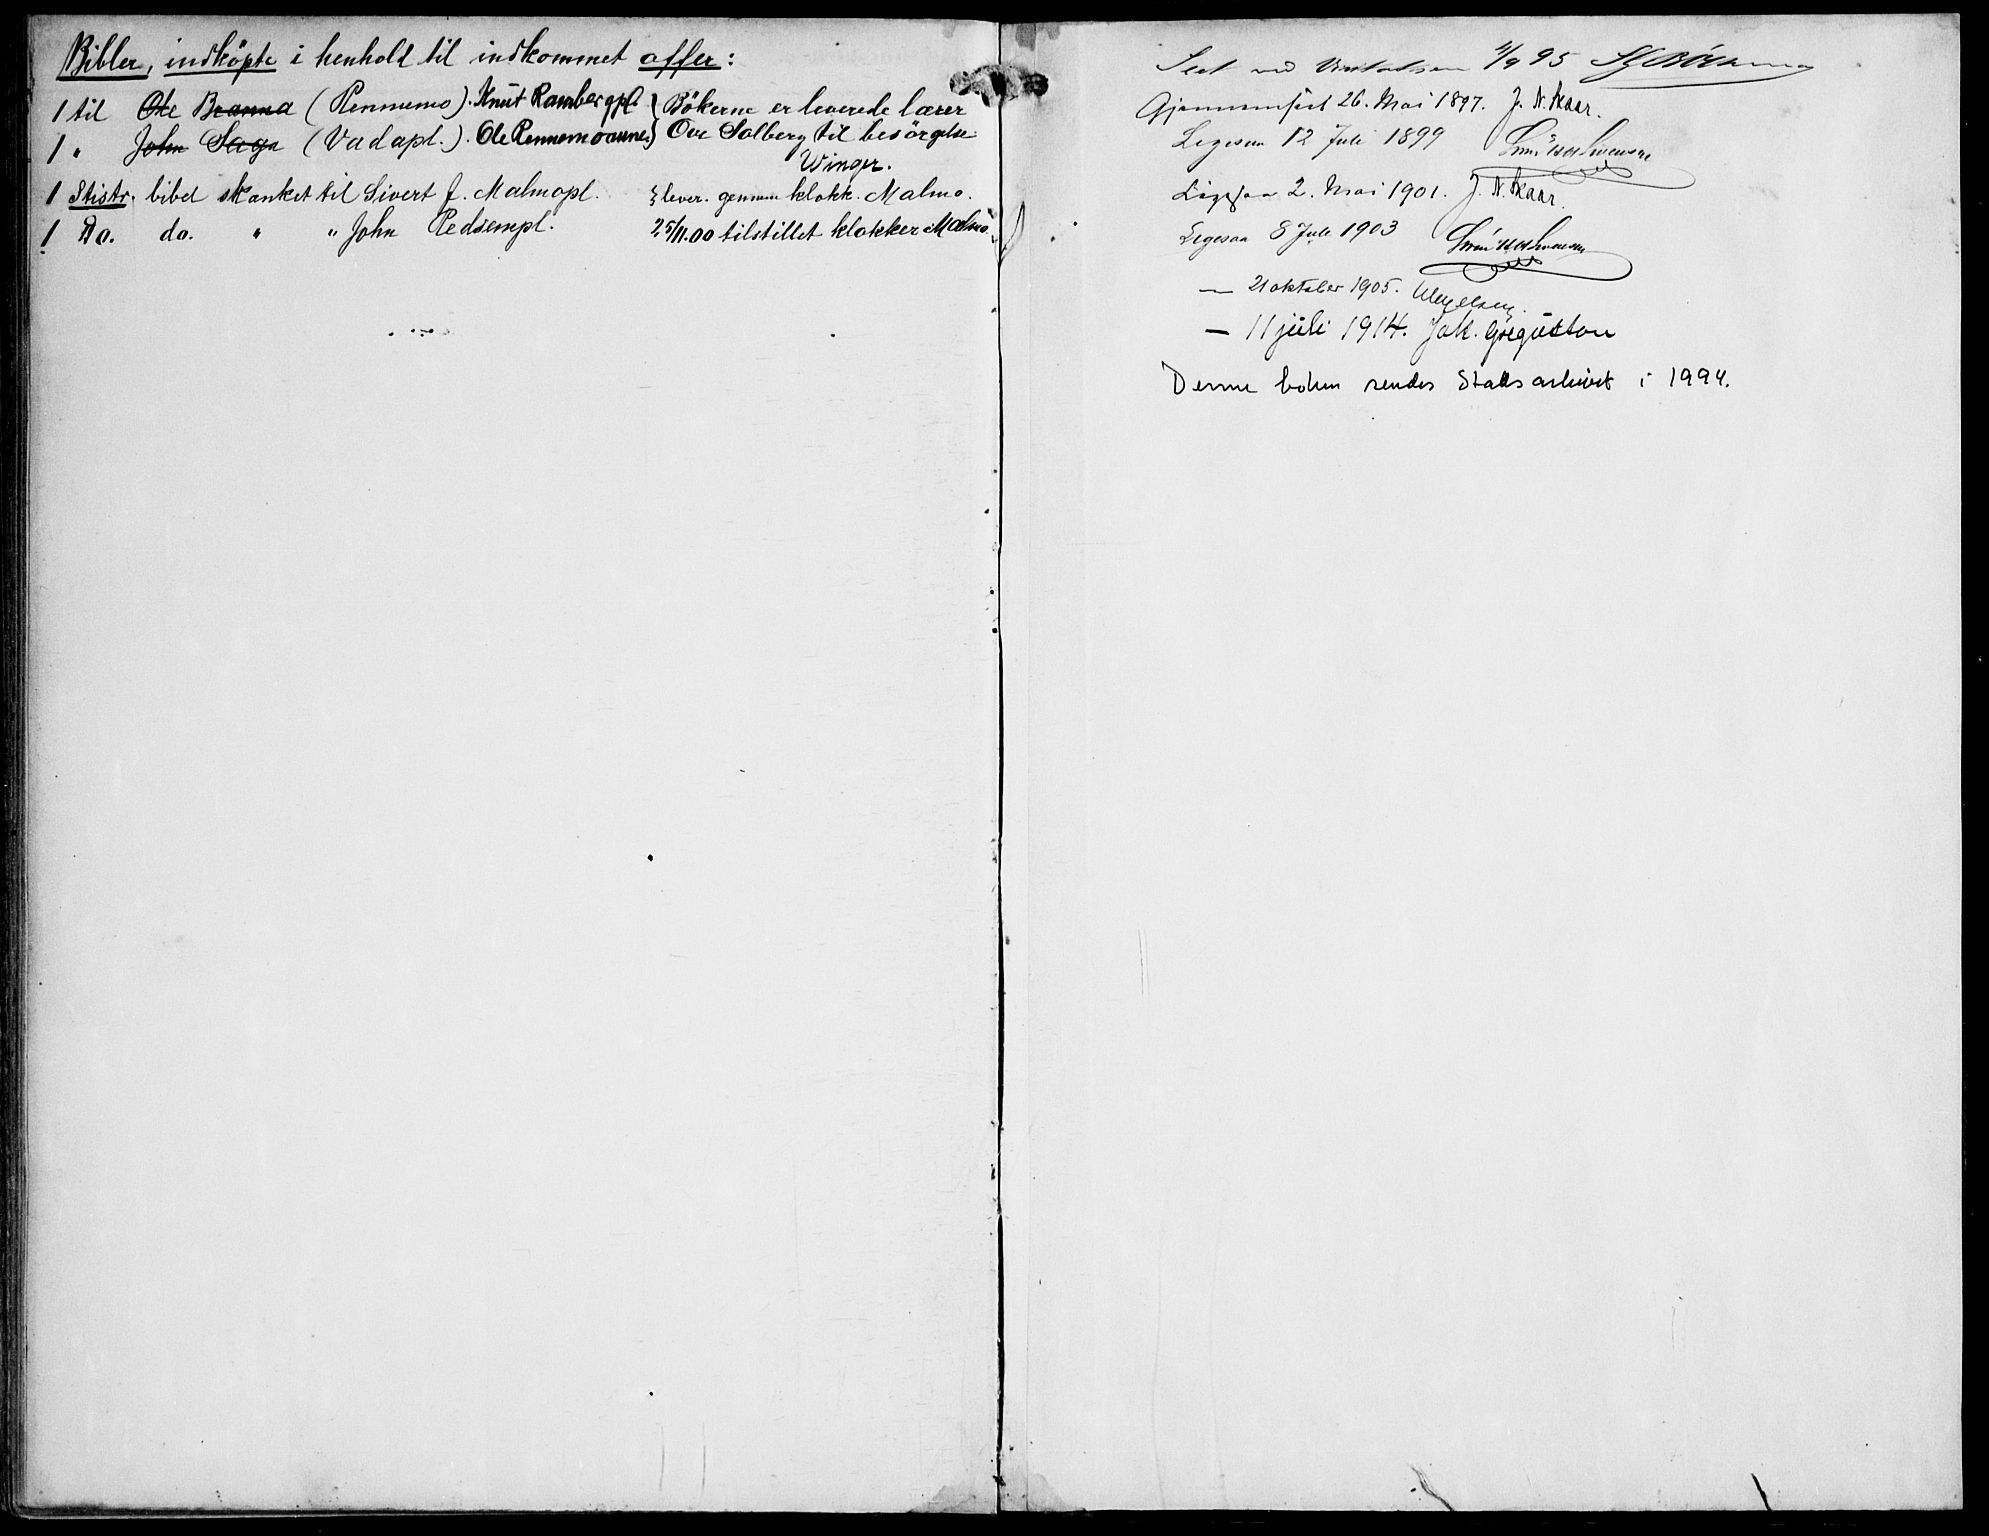 Bibler, indköpte i henhold til indkommet offer:
1 til Ole Branna (Rennemo). Knut Rambergpl. } Bökerne er leverede lærer
1 " John Saga (Vadapl.). Ole Rennemoaunet } Ove Solberg til besörgelse
Winger.
1 Stistr. bibel skænket til Sivert J. Malmopl. } lever. gennem klokk. Malmo.
1 Do. do. " " John Redsempl. 25/11.00 tilstillet klokker Malmo.
Seet ved Visitatsen 4/9 95
Gjennemseet 26. Mai 1897. J. N. Skaar.
Ligesaa 12 Juli 1899
Ligesaa 2. Mai 1901. J. N. Skaar.
Ligesaa 8 Juli 1903
— 21 oktober 1905.
— 11 juli 1914. Jak.
Denne boken sendes Statsarkivet i 1994.